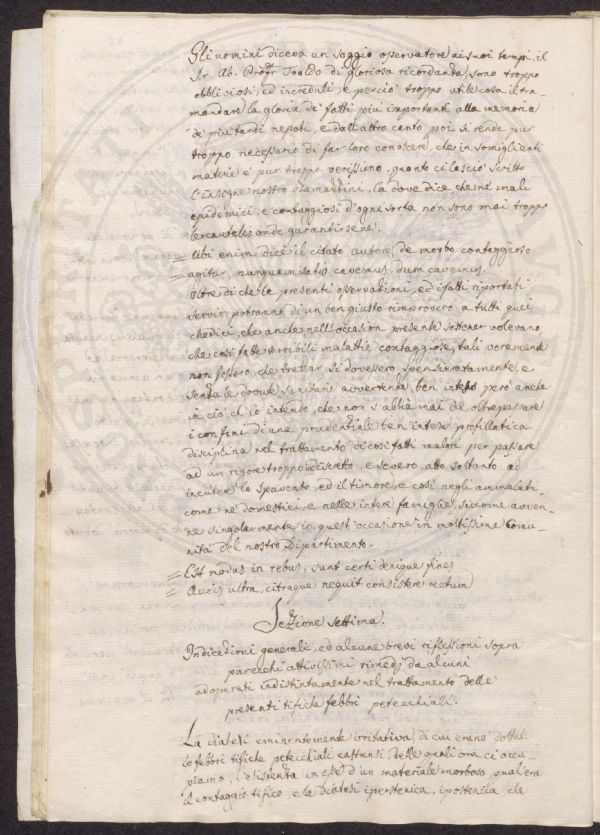 Gli uomini diceva un saggio osservatore ai suoi tempi, il
Sr. Ab. Profr Toaldo di gloriosa ricordanza, sono troppo
obbliviosi, ed increduli, e perciò troppo utile cosa il tra¬
mandare la gloria de' fatti più importanti alla memoria
de' più tardi nepoti, e dall'altro canto poi si rende pur
troppo necessario di far loro conoscere, che in somiglienti
materie è pur troppo verissimo, quanto ci lasciò scritto
l'insegne nostro Ramazzini, la dove dice, che ne' mali
epidemici, e contaggiosi d'ogni sorta non sono mai troppo
le cauteles onde garantirsene.
= Ubi enim dice il citato autore, de morbo contaggioso
agitur, nunquam satis cavemus, dum cavemus.
Oltre di che le presenti osservazioni, ed i fatti riportati
servir potranno di un ben giusto rimprovero a tutti quei
che dici, che anche nell'occasion presente sostener volevano,
che così fatte terribili malattie contaggiose, tali veramente
non fossero, che trettar si dovessero spensieratamente, e
senza le dovute sanitarie avvertenze, ben inteso però anche
in ciò ch'io intendo, che non s'abbia mai di oltrepassare
i confini di una prudenziale ben intesa profillatica
disciplina nel trattamento di così fatti malori per passare
ad un rigore troppo indiscreto, e severo, atto soltanto ad
incutere lo spavento, ed il timore, e così negli ammalati,
come ne' domestici, e nelle intere famiglie, siccome avven¬
ne singolarmente in quest'occasione in moltissime Comu¬
nità del nostro Dipartimento.
= Est modus in rebus, sunt certi denique fines
= Quos ultra, citraque nequit consistere rectum
Sezione settima.
Indicazioni generali, ed alcune brevi riflessioni sopra
parecchi attivissimi rimedj da alcuni
adoperati indistintamente nel trattamento delle
presenti tifiche febbri petecchiali.
La diatesi eminentemente irritativa, di cui erano dottate
le febbri tifiche petecchiali castrensi, delle quali ora ci occu¬
piamo, l'esistenza in esse d'un materiale morboso, qual'era
il contaggio tifico, e la diatesi iperstenica, ipostenica che